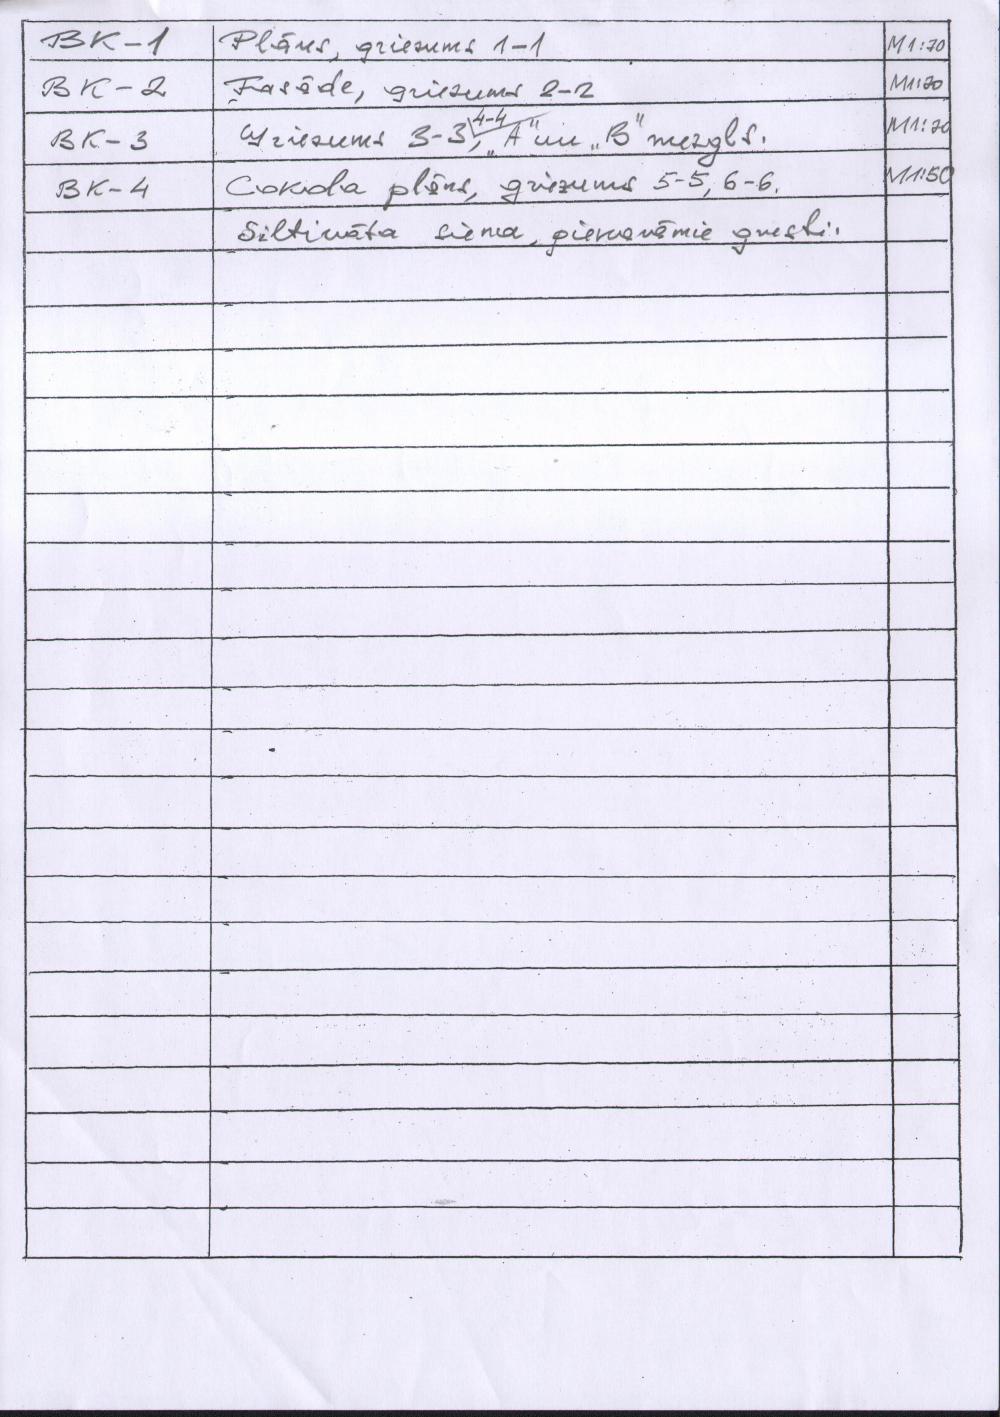 BK-1 Plāns, griezums 1-1 M1:70
BK-2 Fasāde, griezums 2-2 M1:70
BK-3 Griezums 3-3, 4-4 „A" un „B" mezgls. M1:70
BK-4 Cokola plāns, griezums 5-5, 6-6. M1:50
Siltināta siena, griesti.